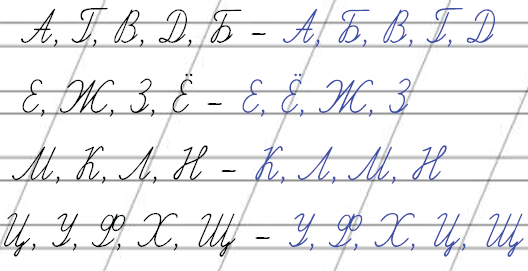 А, Г, В, Д, Б – А, Б, В, Г, Д
Е, Ж, З, Ё – Е, Ё, Ж, З
М, К, Л, Н – К, Л, М, Н
Ц, У, Ф, Х, Щ – У, Ф, Х, Ц, Щ